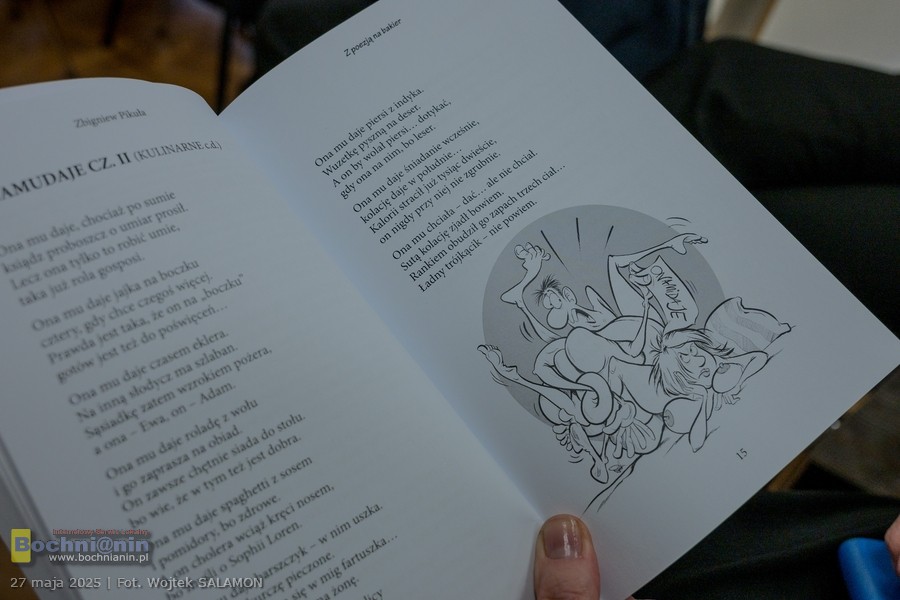 Zbigniew Pikuła
AMUDAJE CZ. II (KULINARNE c.d.)
Ona mu daje, chociaż po sumie
ksiądz proboszcz o umiar prosił.
Lecz ona tylko to robić umie,
taka już rola gosposi.
Ona mu daje jajka na boczku
cztery, gdy chce czegoś więcej.
Prawda jest taka, że on na „boczku”
gotów jest też do poświęceń…
Ona mu daje czasem eklera.
Na inną słodycz ma szlaban.
Sąsiadkę zatem wzrokiem pożera,
a ona – Ewa, on – Adam.
Ona mu daje roladę z wołu
i go zaprasza na obiad.
On zawsze chętnie siada do stołu.
bo wie, że w tym też jest dobra.
Ona mu daje spaghetti z sosem
pomidory, bo zdrowe.
on cholera wciąż kręci nosem,
myśli o Sophii Loren.
daje barszczyk – w nim uszka.
kurczę pieczone.
się w mig fartuszka…
żonę.
Z poezją na bakier
Ona mu daje piersi z indyka.
Wuzetkę pyszną na deser.
A on by wolał piersi… dotykać,
gdy ona na nim, bo leser.
Ona mu daje śniadanie wcześnie,
kolację daje w południe…
Kalorii stracił już tysiąc dwieście,
on nigdy przy niej nie zgrubnie.
Ona mu chciała – dać… ale nie chciał.
Sutą kolację zjadł bowiem.
Rankiem obudził go zapach trzech ciał…
Ładny trójkącik – nie powiem.
ONAMUDAJE
15
Bochni@nin
www.bochnianin.pl
27 maja 2025 | Fot. Wojtek SALAMON